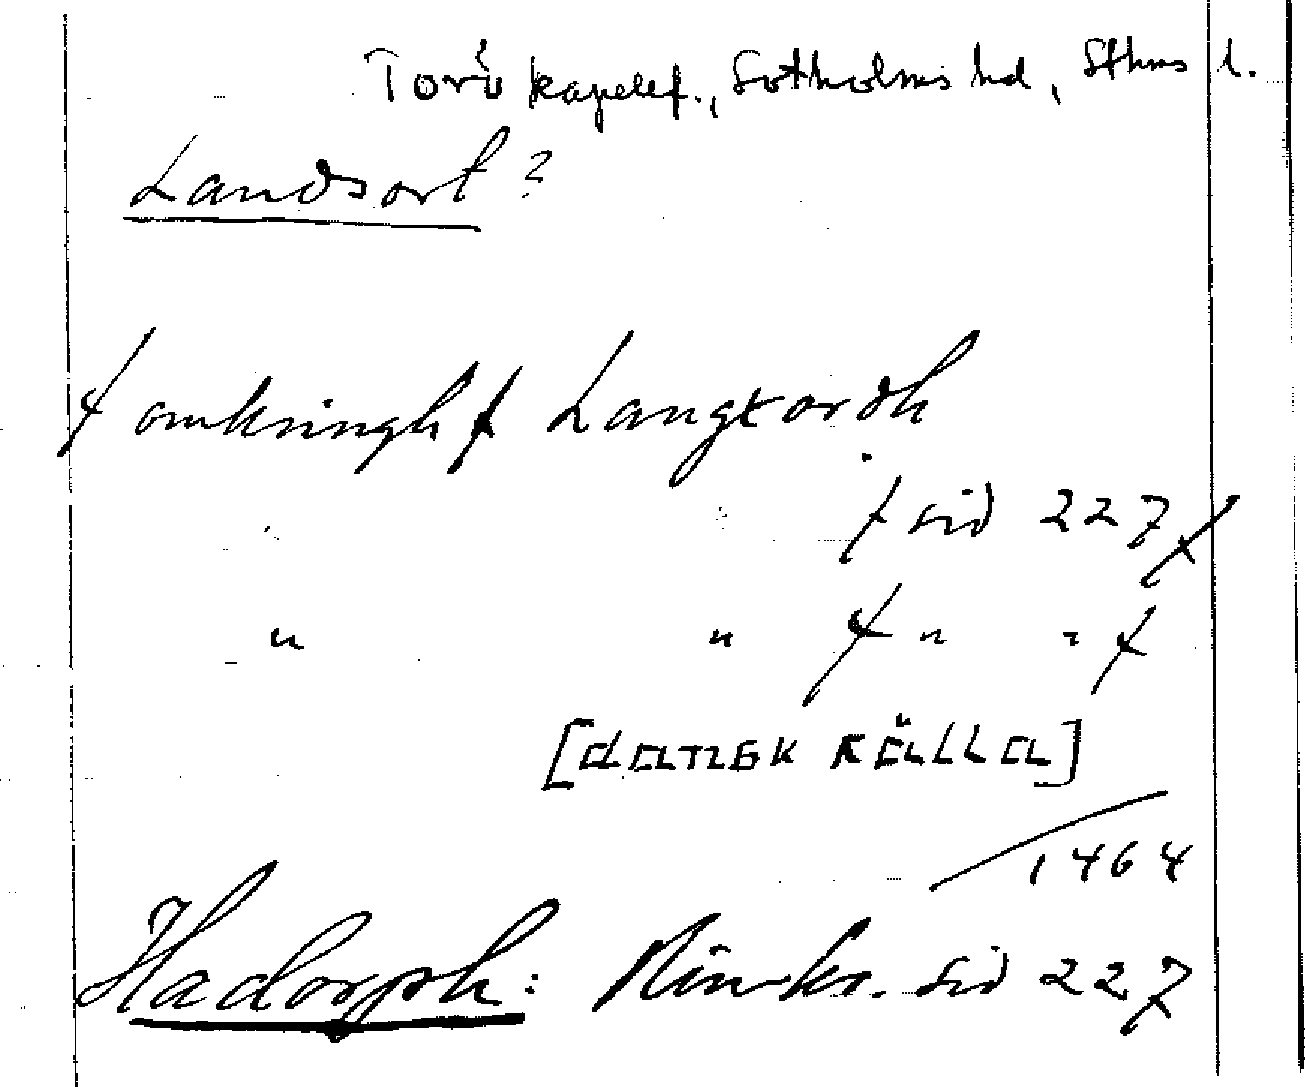 Torö kapellf., Sotholms hd, Sthms l.
Landsort?
/ omkringh / Langxordh
/ sid 227 /
" " / " " /
[dansk källa]
1464
Hadorph: Rimkr. sid 227